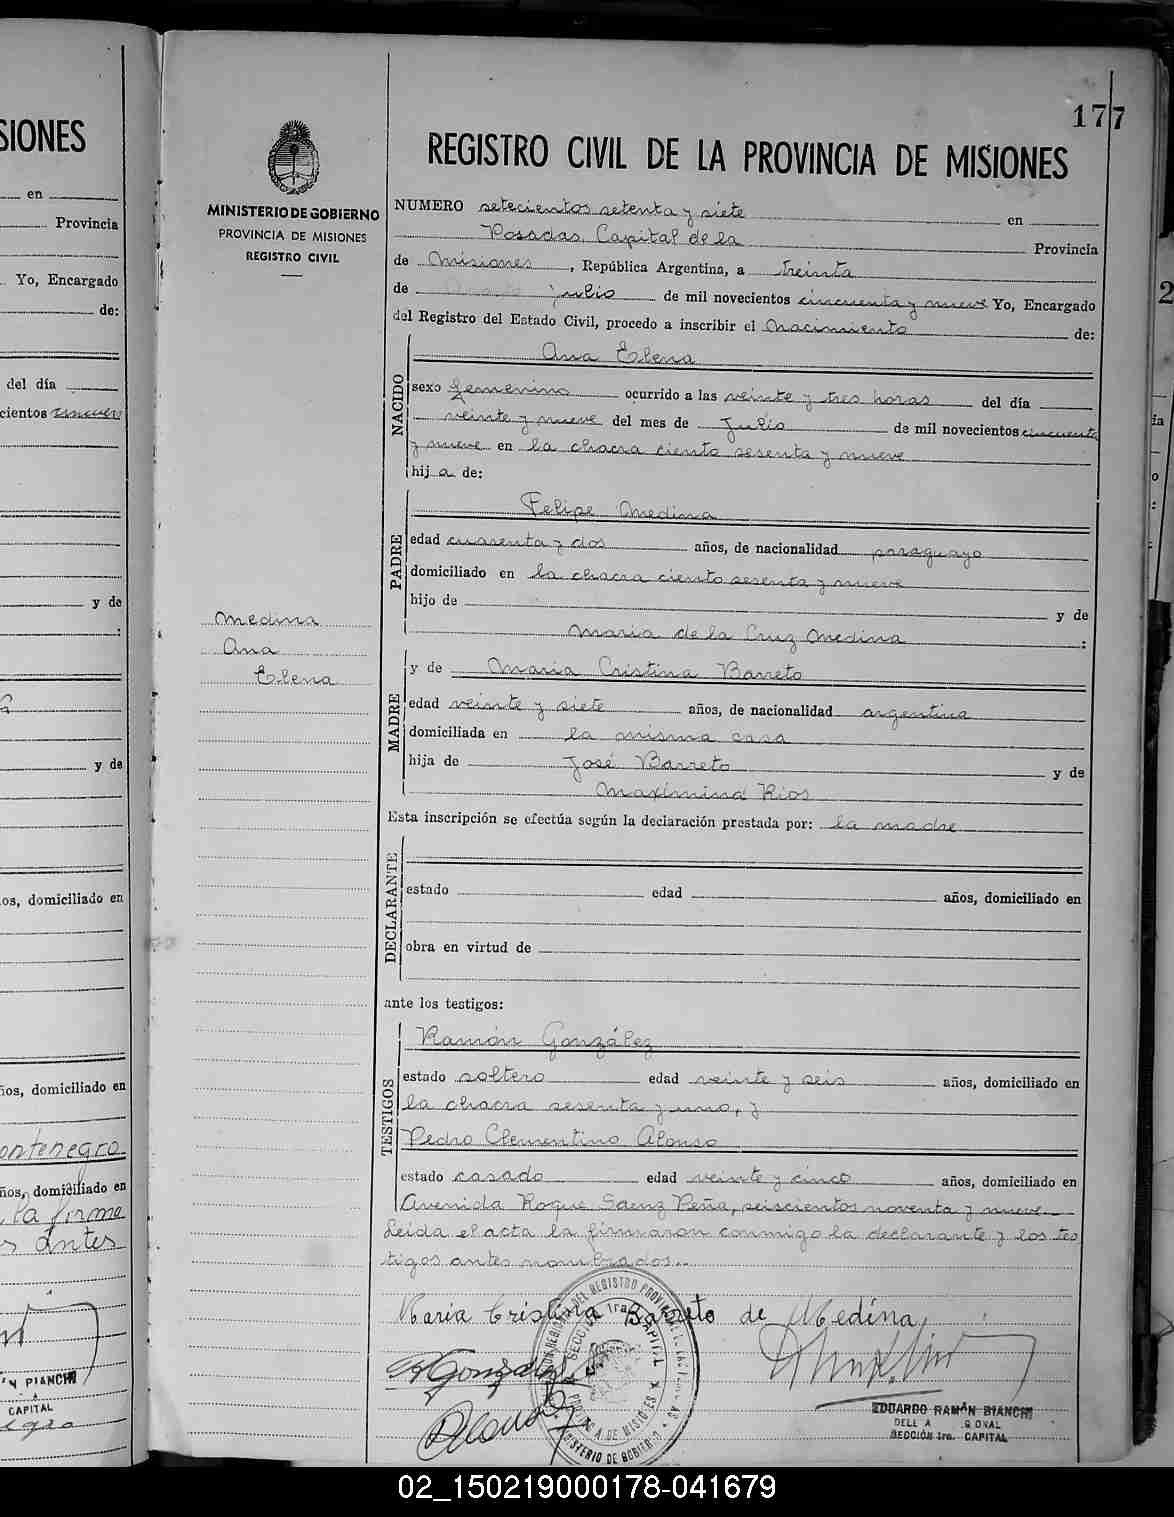 SIONES
en
Provincia
Yo, Encargado
de:
del día
cientos cincuen
y de
:
y de
os, domiciliado en
ños, domiciliado en
ontenegro
ños, domiciliado en
la firme
antes
CAPITAL
177
REGISTRO CIVIL DE LA PROVINCIA DE MISIONES
MINISTERIO DE GOBIERNO
PROVINCIA DE MISIONES
REGISTRO CIVIL
NUMERO setecientos setenta y siete en
Posadas, Capital de la Provincia
de Misiones, República Argentina, a treinta
de julio de mil novecientos cincuenta y nueve Yo, Encargado
del Registro del Estado Civil, procedo a inscribir el nacimiento de:
NACIDO
Ana Elena
sexo femenino ocurrido a las veinte y tres horas del día
veinte y nueve del mes de Julio de mil novecientos cincuenta
y nueve en la chacra ciento sesenta y nueve
hij a de:
PADRE
Felipe Medina
edad cuarenta y dos años, de nacionalidad paraguayo
domiciliado en la chacra ciento sesenta y nueve
hijo de y de
Maria de la Cruz Medina :
Medina
Ana
Elena
MADRE
y de Maria Cristina Barreto
edad veinte y siete años, de nacionalidad argentina
domiciliada en la misma casa
hija de José Barreto y de
Maximina Rios
Esta inscripción se efectúa según la declaración prestada por: la madre
DECLARANTE
estado edad años, domiciliado en
obra en virtud de
ante los testigos:
TESTIGOS
Ramón González
estado soltero edad veinte y seis años, domiciliado en
la chacra sesenta y uno, y
Pedro Clementino Alonso
estado casado edad veinte y cinco años, domiciliado en
Avenida Roque Saenz Peña, seiscientos noventa y nueve
Leída el acta la firmaron conmigo la declarante y los tes
tigos antes nombrados..
Maria Cristina Barreto de Medina
R Gonzalez
Alonso
SECCIÓN 1ra. CAPITAL
MINISTERIO DE GOBIERNO
EDUARDO RAMÓN BIANCHI
SECCIÓN 1ra. CAPITAL
02_150219000178-041679